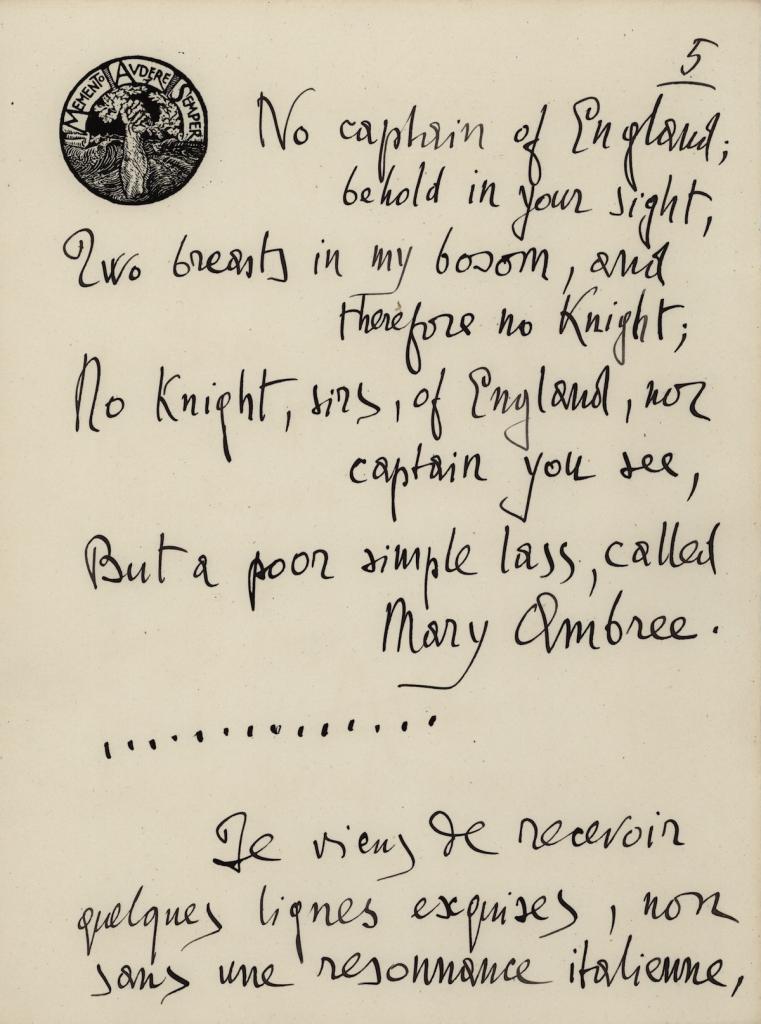 5
MEMENTO AVDERE SEMPER
No captain of England;
behold in your sight,
Two breasts in my bosom, and
therefore no Knight;
No Knight, sirs, of England, nor
captain you see,
But a poor simple lass, called
Mary Ambree.
..............
Je viens de recevoir
quelques lignes exquises, non
sans une resonnance italienne,